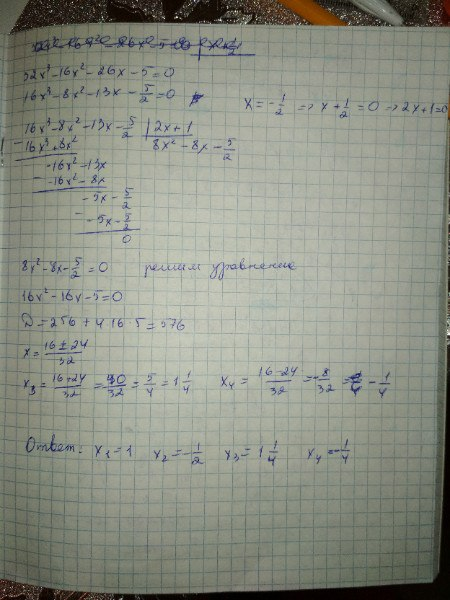 32x³-16x²-26x-5=0
16x³-8x²-13x-5/2=0
x=-1/2 ⇒ x+1/2=0 ⇒ 2x+1=0
16x³-8x²-13x-5/2 | 2x+1
16x³+8x² | 8x²-8x-5/2
-16x²-13x
-16x²-8x
-5x-5/2
-5x-5/2
0
8x²-8x-5/2=0 решим уравнение
16x²-16x-5=0
D=256+4·16·5=576
x=(16±24)/32
x₃=(16+24)/32=40/32=5/4=1 1/4 x₄=(16-24)/32=-8/32=-1/4
Ответ: x₁=1 x₂=-1/2 x₃=1 1/4 x₄=-1/4